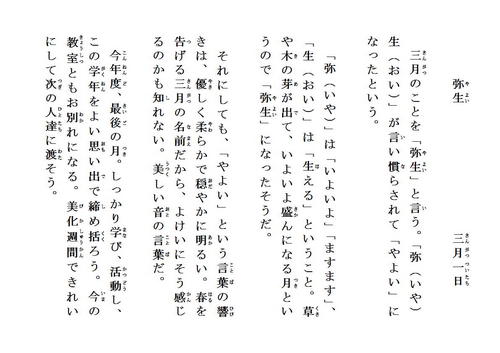 弥生　三月一日
三月のことを「弥生」と言う。「弥（いや）
生（おい）」が言い慣らされて「やよい」に
なったという。
「弥（いや）」は「いよいよ」「ますます」、
「生（おい）」は「生える」ということ。草
や木の芽が出て、いよいよ盛んになる月とい
うので「弥生」になったそうだ。
それにしても、「やよい」という言葉の響
きは、優しく柔らかで穏やかに明るい。春を
告げる三月の名前だから、よけいにそう感じ
るのかも知れない。美しい音の言葉だ。
今年度、最後の月。しっかり学び、活動し、
この学年をよい思い出で締め括ろう。今の
教室ともお別れになる。美化週間できれい
にして次の人達に渡そう。